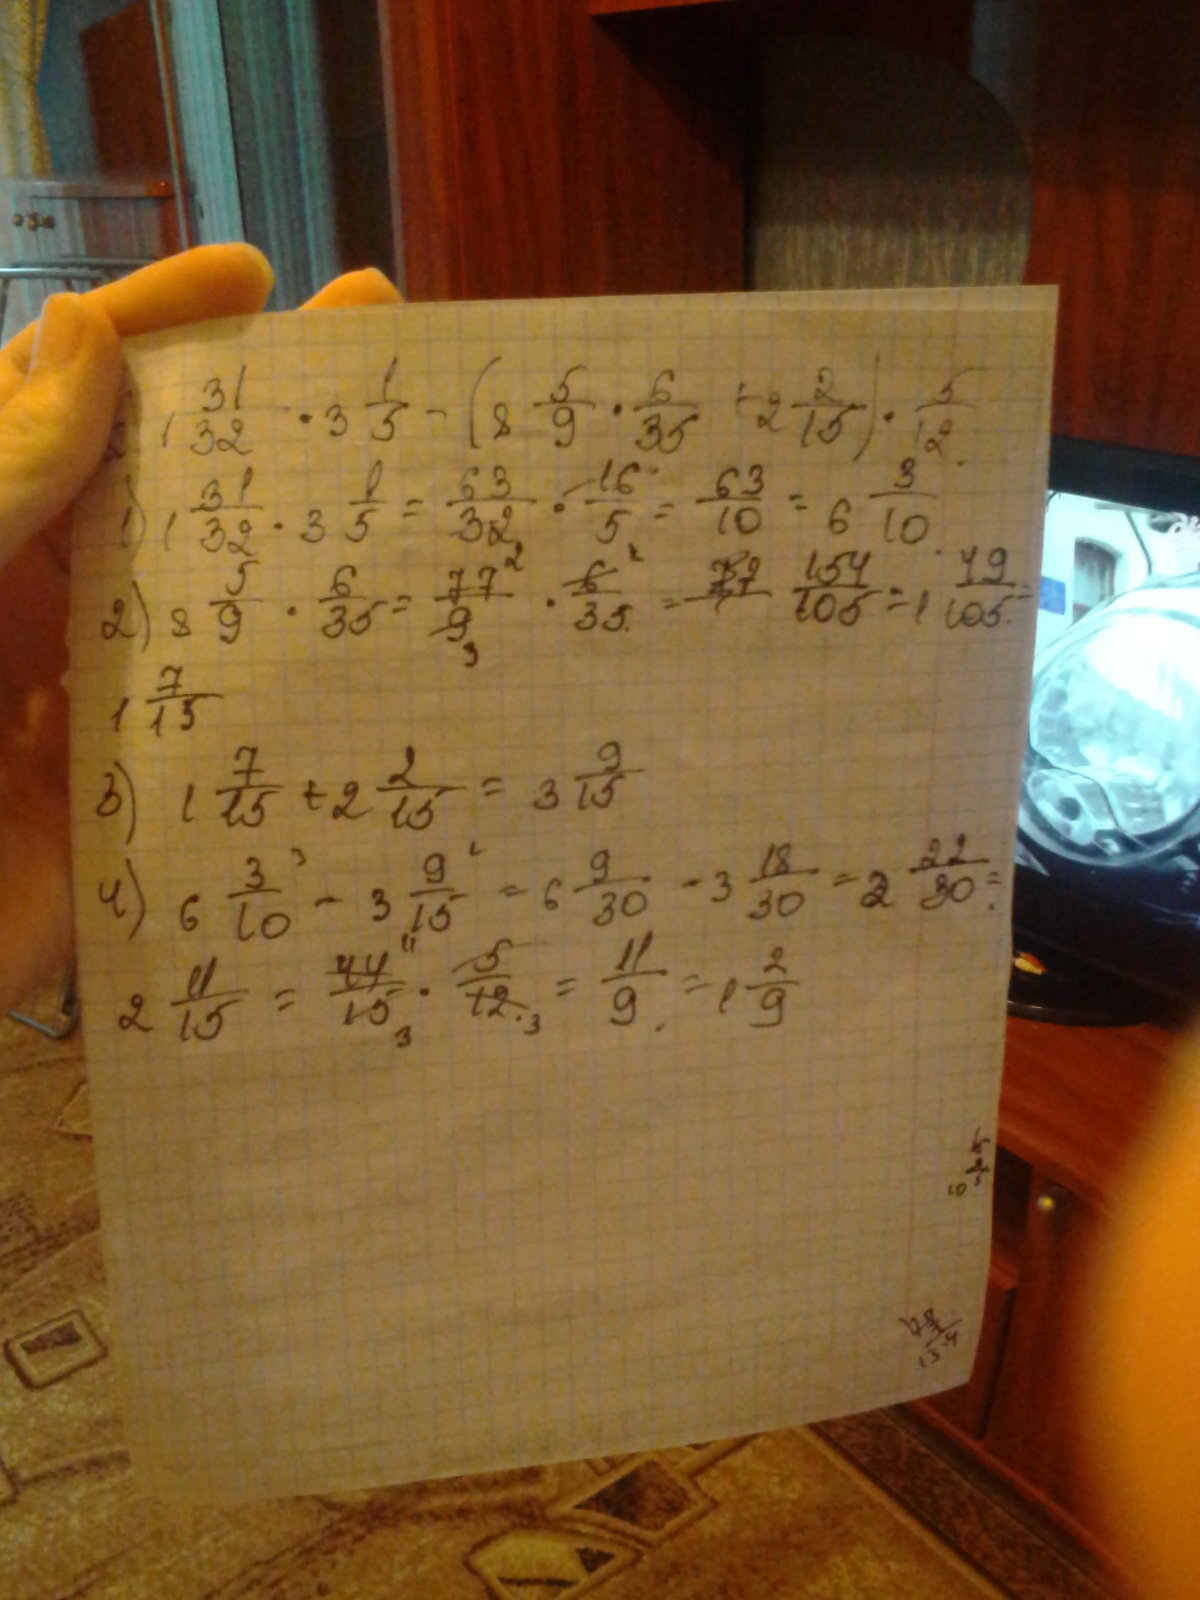 1 31/32 · 3 1/5 - (8 5/9 · 6/35 + 2 2/15) · 5/12
1) 1 31/32 · 3 1/5 = 63/32 · 16/5 = 63/10 = 6 3/10
2) 8 5/9 · 6/35 = 77/9 3 · 6/35 2 = 154/105 = 1 49/105 =
1 7/15
3) 1 7/15 + 2 2/15 = 3 9/15
4) 6 3/10 - 3 9/15 = 6 9/30 - 3 18/30 = 2 22/30 =
2 11/15 = 44/15 · 5/12 = 11/9 = 1 2/9